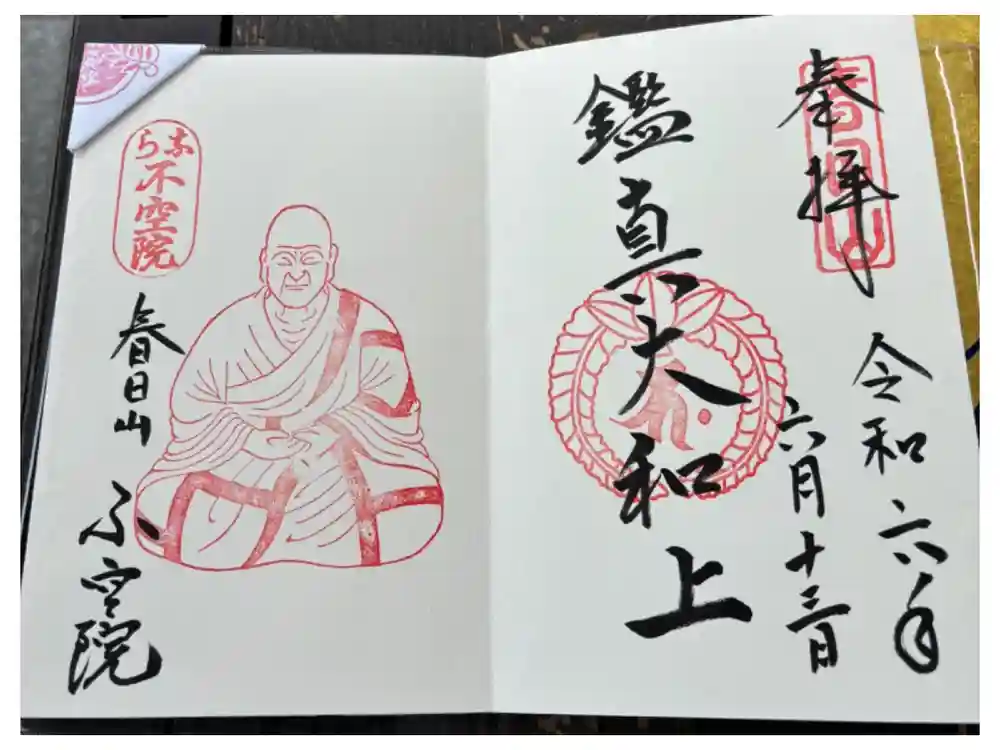 奉拝
令和六年
六月十三日
鑑真大和上
なら
不空院
春日山
不空院